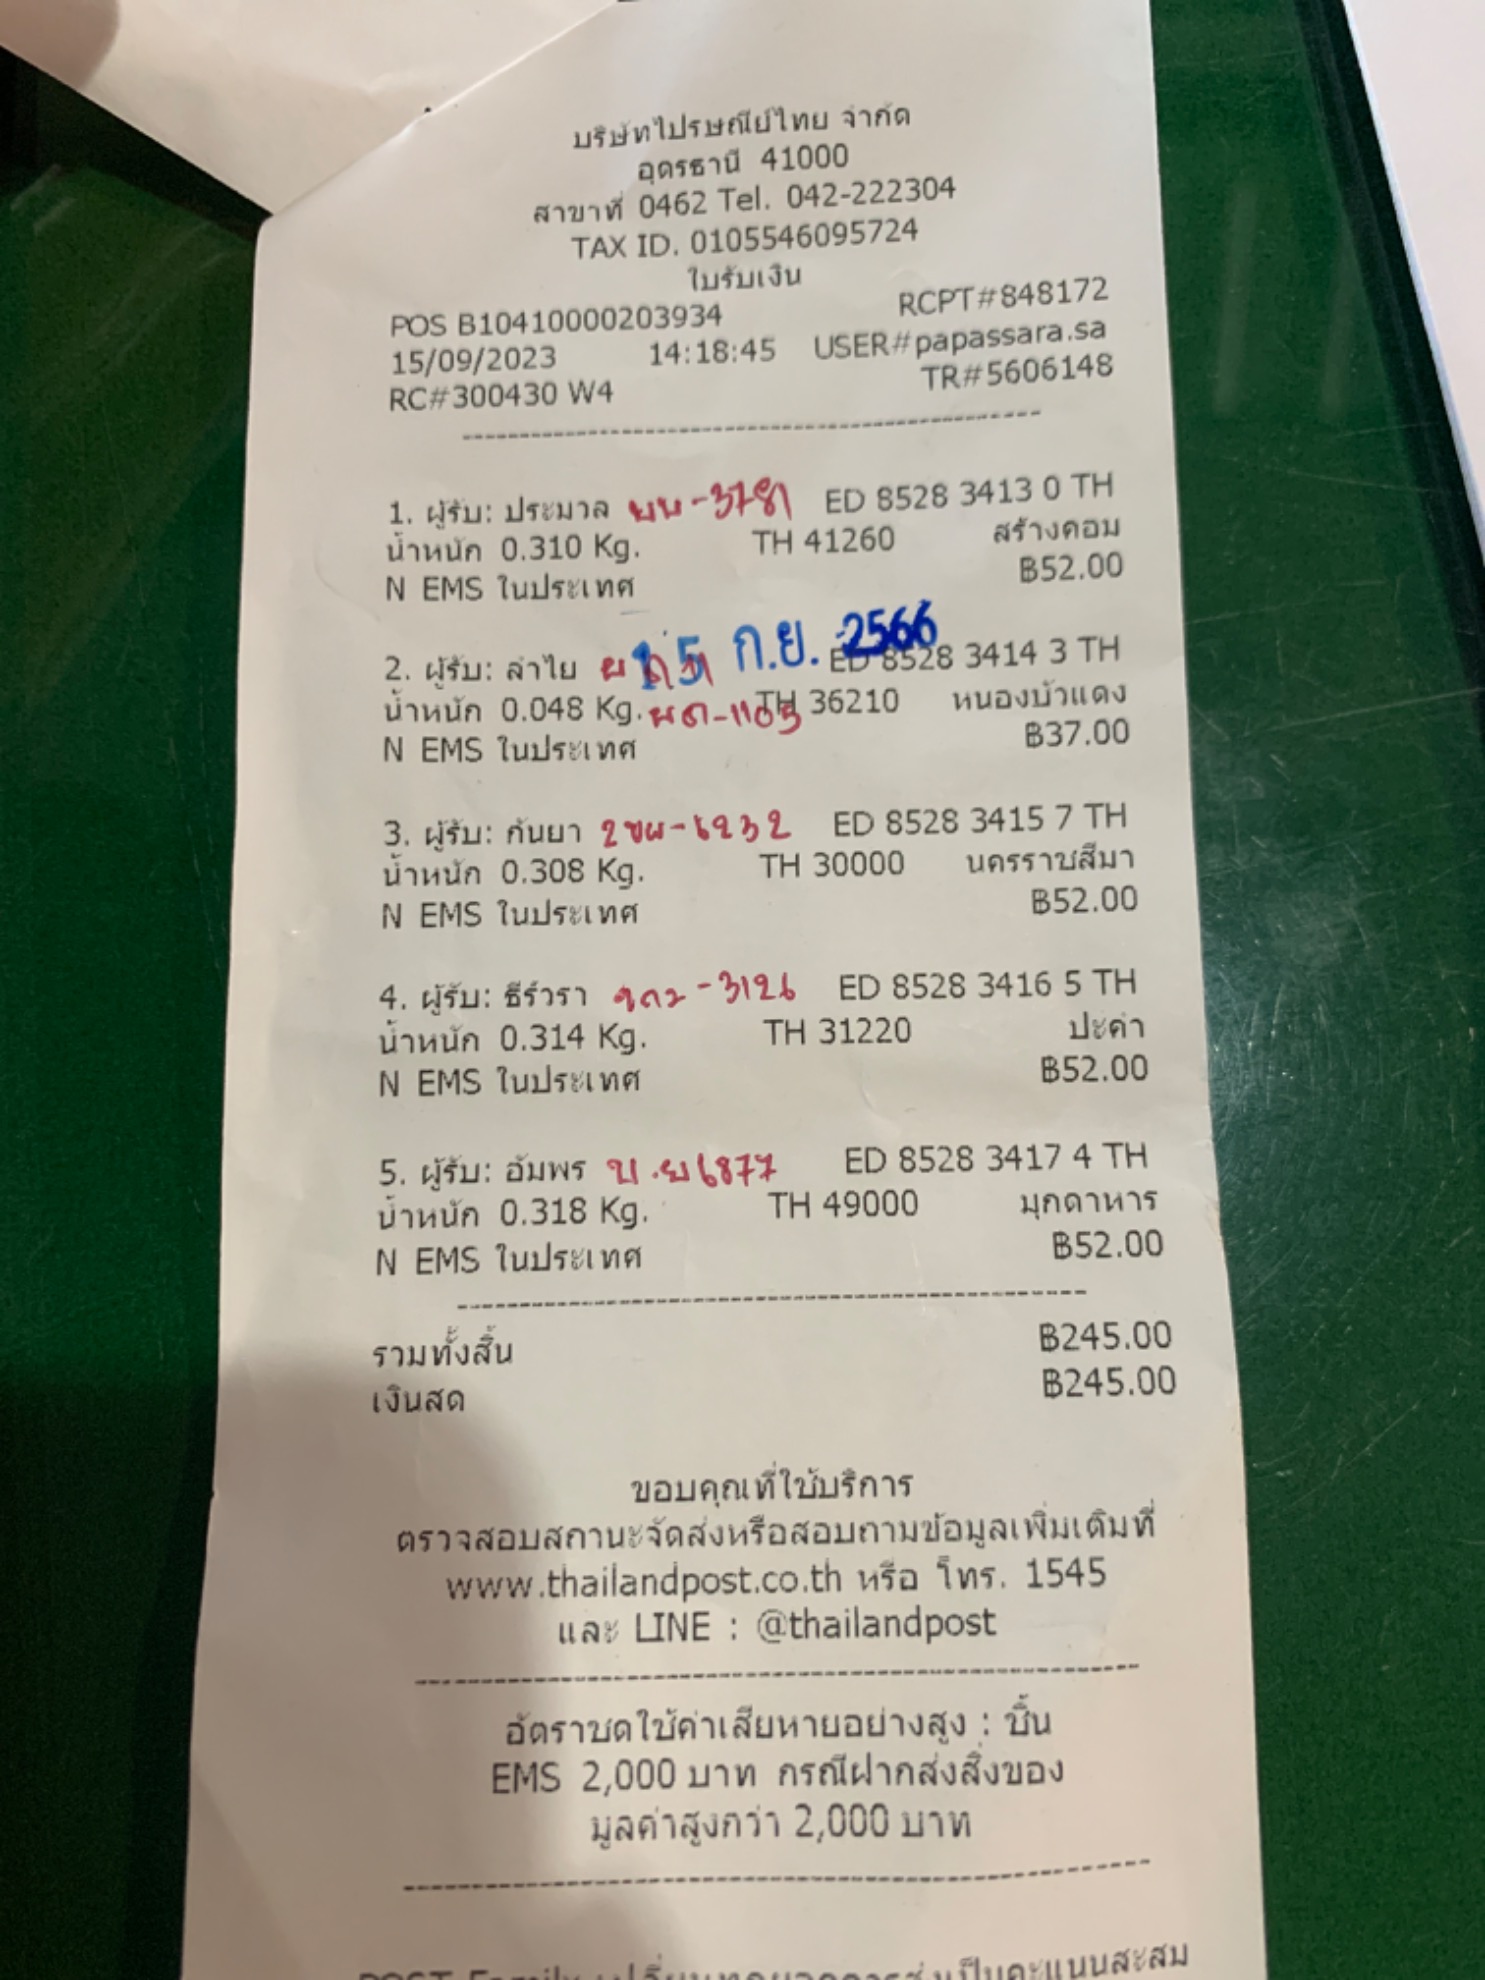 บริษัทไปรษณีย์ไทย จำกัด
อุดรธานี 41000
สาขาที่ 0462 Tel. 042-222304
TAX ID. 0105546095724
ใบรับเงิน
POS B10410000203934 RCPT#848172
15/09/2023 14:18:45 USER#papassara.sa
RC#300430 W4 TR#5606148
1. ผู้รับ: ประมาล -3781 ED 8528 3413 0 TH
น้ำหนัก 0.310 Kg. TH 41260 สร้างคอม
N EMS ในประเทศ ฿52.00
15 ก.ย. 2566
2. ผู้รับ: ลำไย ED 8528 3414 3 TH
น้ำหนัก 0.048 Kg. ผต-1105 TH 36210 หนองบัวแดง
N EMS ในประเทศ ฿37.00
3. ผู้รับ: กันยา 2ขผ-6232 ED 8528 3415 7 TH
น้ำหนัก 0.308 Kg. TH 30000 นครราชสีมา
N EMS ในประเทศ ฿52.00
4. ผู้รับ: ธีร์วรา -3126 ED 8528 3416 5 TH
น้ำหนัก 0.314 Kg. TH 31220 ปะคำ
N EMS ในประเทศ ฿52.00
5. ผู้รับ: อัมพร 6877 ED 8528 3417 4 TH
น้ำหนัก 0.318 Kg. TH 49000 มุกดาหาร
N EMS ในประเทศ ฿52.00
รวมทั้งสิ้น ฿245.00
เงินสด ฿245.00
ขอบคุณที่ใช้บริการ
ตรวจสอบสถานะจัดส่งหรือสอบถามข้อมูลเพิ่มเติมที่
www.thailandpost.co.th หรือ โทร. 1545
และ LINE : @thailandpost
อัตราชดใช้ค่าเสียหายอย่างสูง : ชิ้น
EMS 2,000 บาท กรณีฝากส่งสิ่งของ
มูลค่าสูงกว่า 2,000 บาท
POST Family เปลี่ยนทุกยอดการส่งเป็นคะแนนสะสม